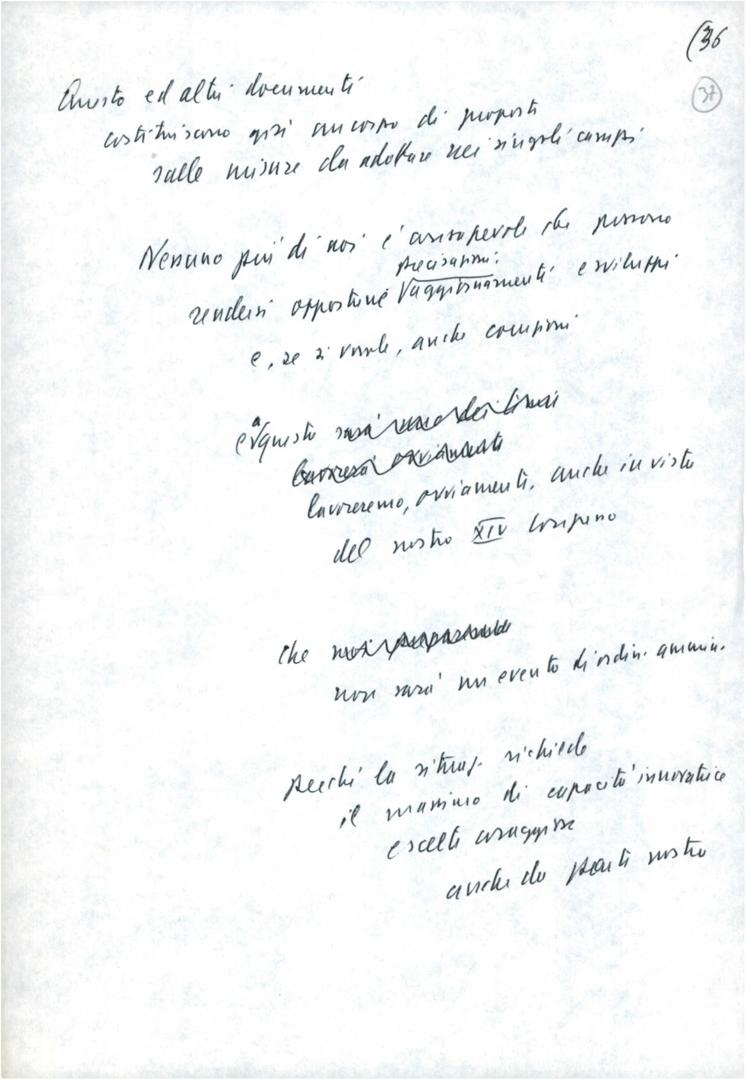 (36
37
Questo ed altri documenti
costituiscono già un corpo di proposte
sulle misure da adottare nei singoli campi
Nessuno più di noi è consapevole che possono
precisazioni
rendersi opportune aggiornamenti e sviluppi
e, se si vuole, anche correzioni
e a questo sarà uno dei temi
lavorerà ovviamente
lavoreremo, ovviamente, anche in vista
del nostro XIV Congresso
che
non sarà un evento di ordin. ammin.
perché la situaz. richiede
il massimo di capacità innovatrice
e scelte coraggiose
anche da parte nostra